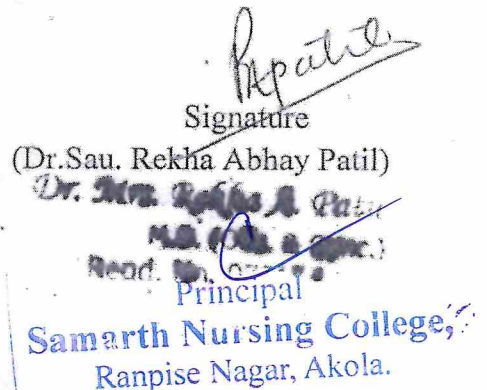 RAPatil
Signature
(Dr.Sau. Rekha Abhay Patil)
Dr. Mrs. Rekha A. Patil
M.D. (Obs. & Gynec.)
Read. No.
Principal
Samarth Nursing College,
Ranpise Nagar, Akola.